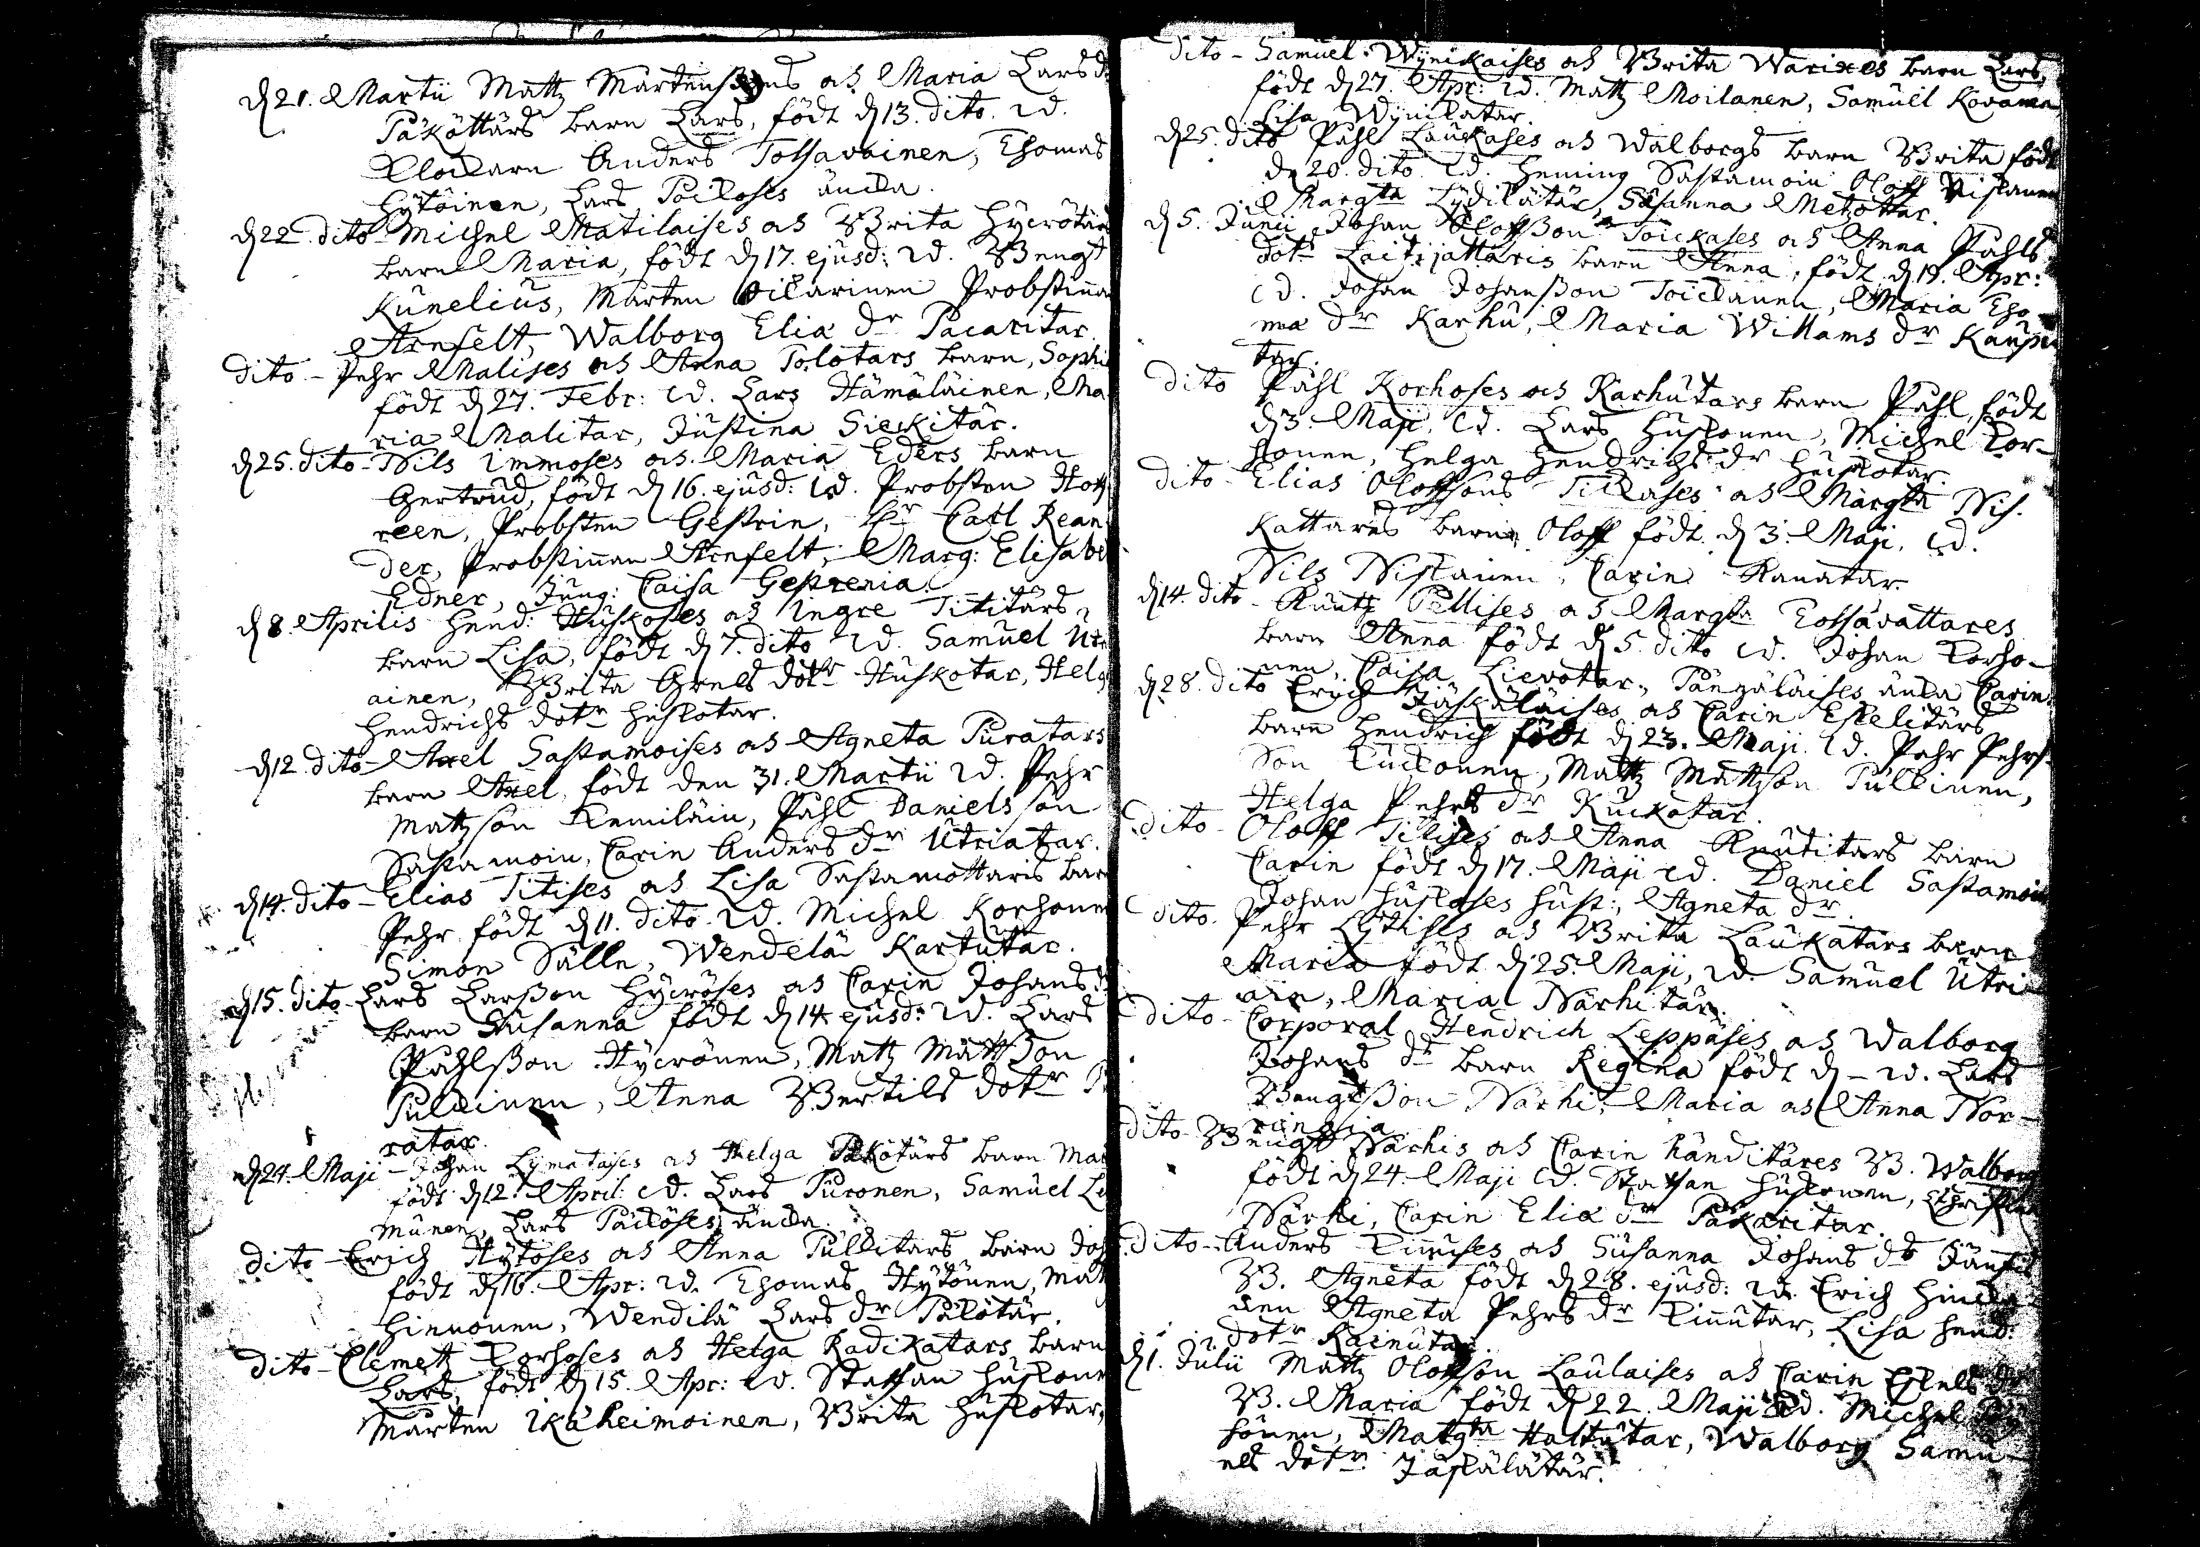 d 21. Martii Mattz Mårtenssons och Maria Larsd:
Påköttärs barn Lars, födt d 13. dito. Td.
Klockarn Anders Tossavainen, Thomas
Hytöinen, Lars Påikoses äncka.
d 22 dito - Michel Matilaises och Brita Hycrötärs
barn Maria, födt d 17. ejusd: Td. Bengt
Kunelius, Mårten Pikarinen Probstinnan
Arnfelt, Walborg Eliæ dr Pacaritar.
dito - Pehr Malises och Anna Polotars barn, Sophia
födt d 27. Febr: Td. Lars Hämäläinen, Ma
ria Malitar, Justina Sieckitär.
d 25. dito - Nils Immoses och Maria Eders barn
Gertrud, födt d 16. ejusd: Td. Probsten
reen, Probsten Gestrin, Hr Carl Rean
der, Probstinnan Arnfelt, Marg: Elisabet
Edner, Jung: Caisa Gestrenia.
d 8. Aprilis Hend: Huskoses och Ingre Tititärs
barn Lisa, födt d 7. dito Td. Samuel Utri
ainen, Brita Grels dotr Huskotar, Helga
Hendrichs dotr Huskotar.
d 12. dito - Axel Sastamoises och Agneta Puratars
barn Axel, födt den 31. Martii Td. Pehr
Matzson Kemiläin, Påhl Danielsson
Sastamoin, Carin Anders dr Utriatar.
d 14. dito - Elias Titises och Lisa Sastamottaris barn
Pehr födt d 11. dito Td. Michel Korhonen
Simon Sälle, Wendelä Kartutar.
d 15. dito - Lars Larsson Hycröses och Carin Johans dr
barn Susanna födt d 14 ejusd: Td. Lars
Påhlsson Hycrönen, Mattz Mattsson
Pulkinen, Anna Bertils dotr
ratar.
d 24. Maji - Johan Lymataises och Helga Päkötärs barn
födt d 12. April Td. Lars Puronen, Samuel
munen, Lars Päiköses äncka.
dito - Erich Hytöses och Anna Pulkitärs barn
födt d 16. Apr: Td. Thomas Hytönen,
Hinnonen, Wendilä Lars dr Pälötär.
dito - Clemetz Korhoses och Helga Radikatars barn
Lars, födt d 15. Apr: Td. Staffan Huskonen
Mårten Ikäheimoinen, Brita Huskotar,
dito - Samuel Wynikaises och Brita Warixes barn Lars,
födt d 27. Apr: Td. Mattz Moilanen, Samuel Kovanen
Lisa Wynikatar.
d 25. dito Påhl Lauckases och Walborgs barn Brita födt
d 20. dito Td. Heming Sastamoin Oloff Niskanen
Margta Lydikätär, Susanna Metzottar.
d 5. Junii Johan Oloffsson Toickases och Anna Påhls
dotr Laitijattaris barn Anna, födt d 19. Apr:
Td. Johan Johansson Toickainen, Maria Tho
mæ dr Karhu, Maria Willams dr Kaupi
tar.
dito Påhl Korhoses och Karhutars barn Påhl, födt
d 3. Maji, Td. Lars Huskonen, Michel Kor-
honen, Helga Hendrichs dr Huskotar.
dito - Elias Oloffsons Tickases och Margta Nis-
kattares barn Oloff födt. d 3. Maji, Td.
Nils Niskainen, Carin Ranatar.
d 14. dito - Knutz Pellises och Margta Tossavattares
barn Anna födt d 5. dito Td. Johan Korho-
nen Caisa Lievotar, Pänzäläises äncka Carin
d 28. dito Erich Jäskäläises och Carin Eskelitärs
barn Hendrich födt d 23. Maji Td. Pehr Pehrs-
son Kuckonen, Mattz Mattsson Pulkinen,
Helga Pehrs dr Kuckotar.
dito - Oloff Tilises och Anna Knutitars barn
Carin födt d 17. Maji Td. Daniel Sastamoin
Johan Huskoses hust:, Agneta dr
dito. Pehr Lytises och Brita Laukatars barn
Maria födt d 25. Maji, Td. Samuel Utri-
ain, Maria Närhitär.
dito - Corporal Hendrich Leppäses och Walborg
Johans dr barn Regina födt d - Td. Lars
Bengtsson Närhi, Maria och Anna Nor-
ringia
dito - Bengt Närhis och Carin Händitäres B. Walborg
födt d 24. Maji Td. Staffan Huskonen,
Närhi, Carin Eliæ dr Pakaritar.
dito - Anders Kinnuses och Susanna Johans dr
B. Agneta födt d 28. ejusd: Td. Erich
nen Agneta Pehrs dr Kinnutar, Lisa Hend:
dotr Kainutar
d 1. Julii Mattz Oloffson Laulaises och Carin Eskels dr
B. Maria födt d 22. Maji Td. Michel
hönen, Margta Haltutar, Walborg Samu-
els dotr Jäskälätär.